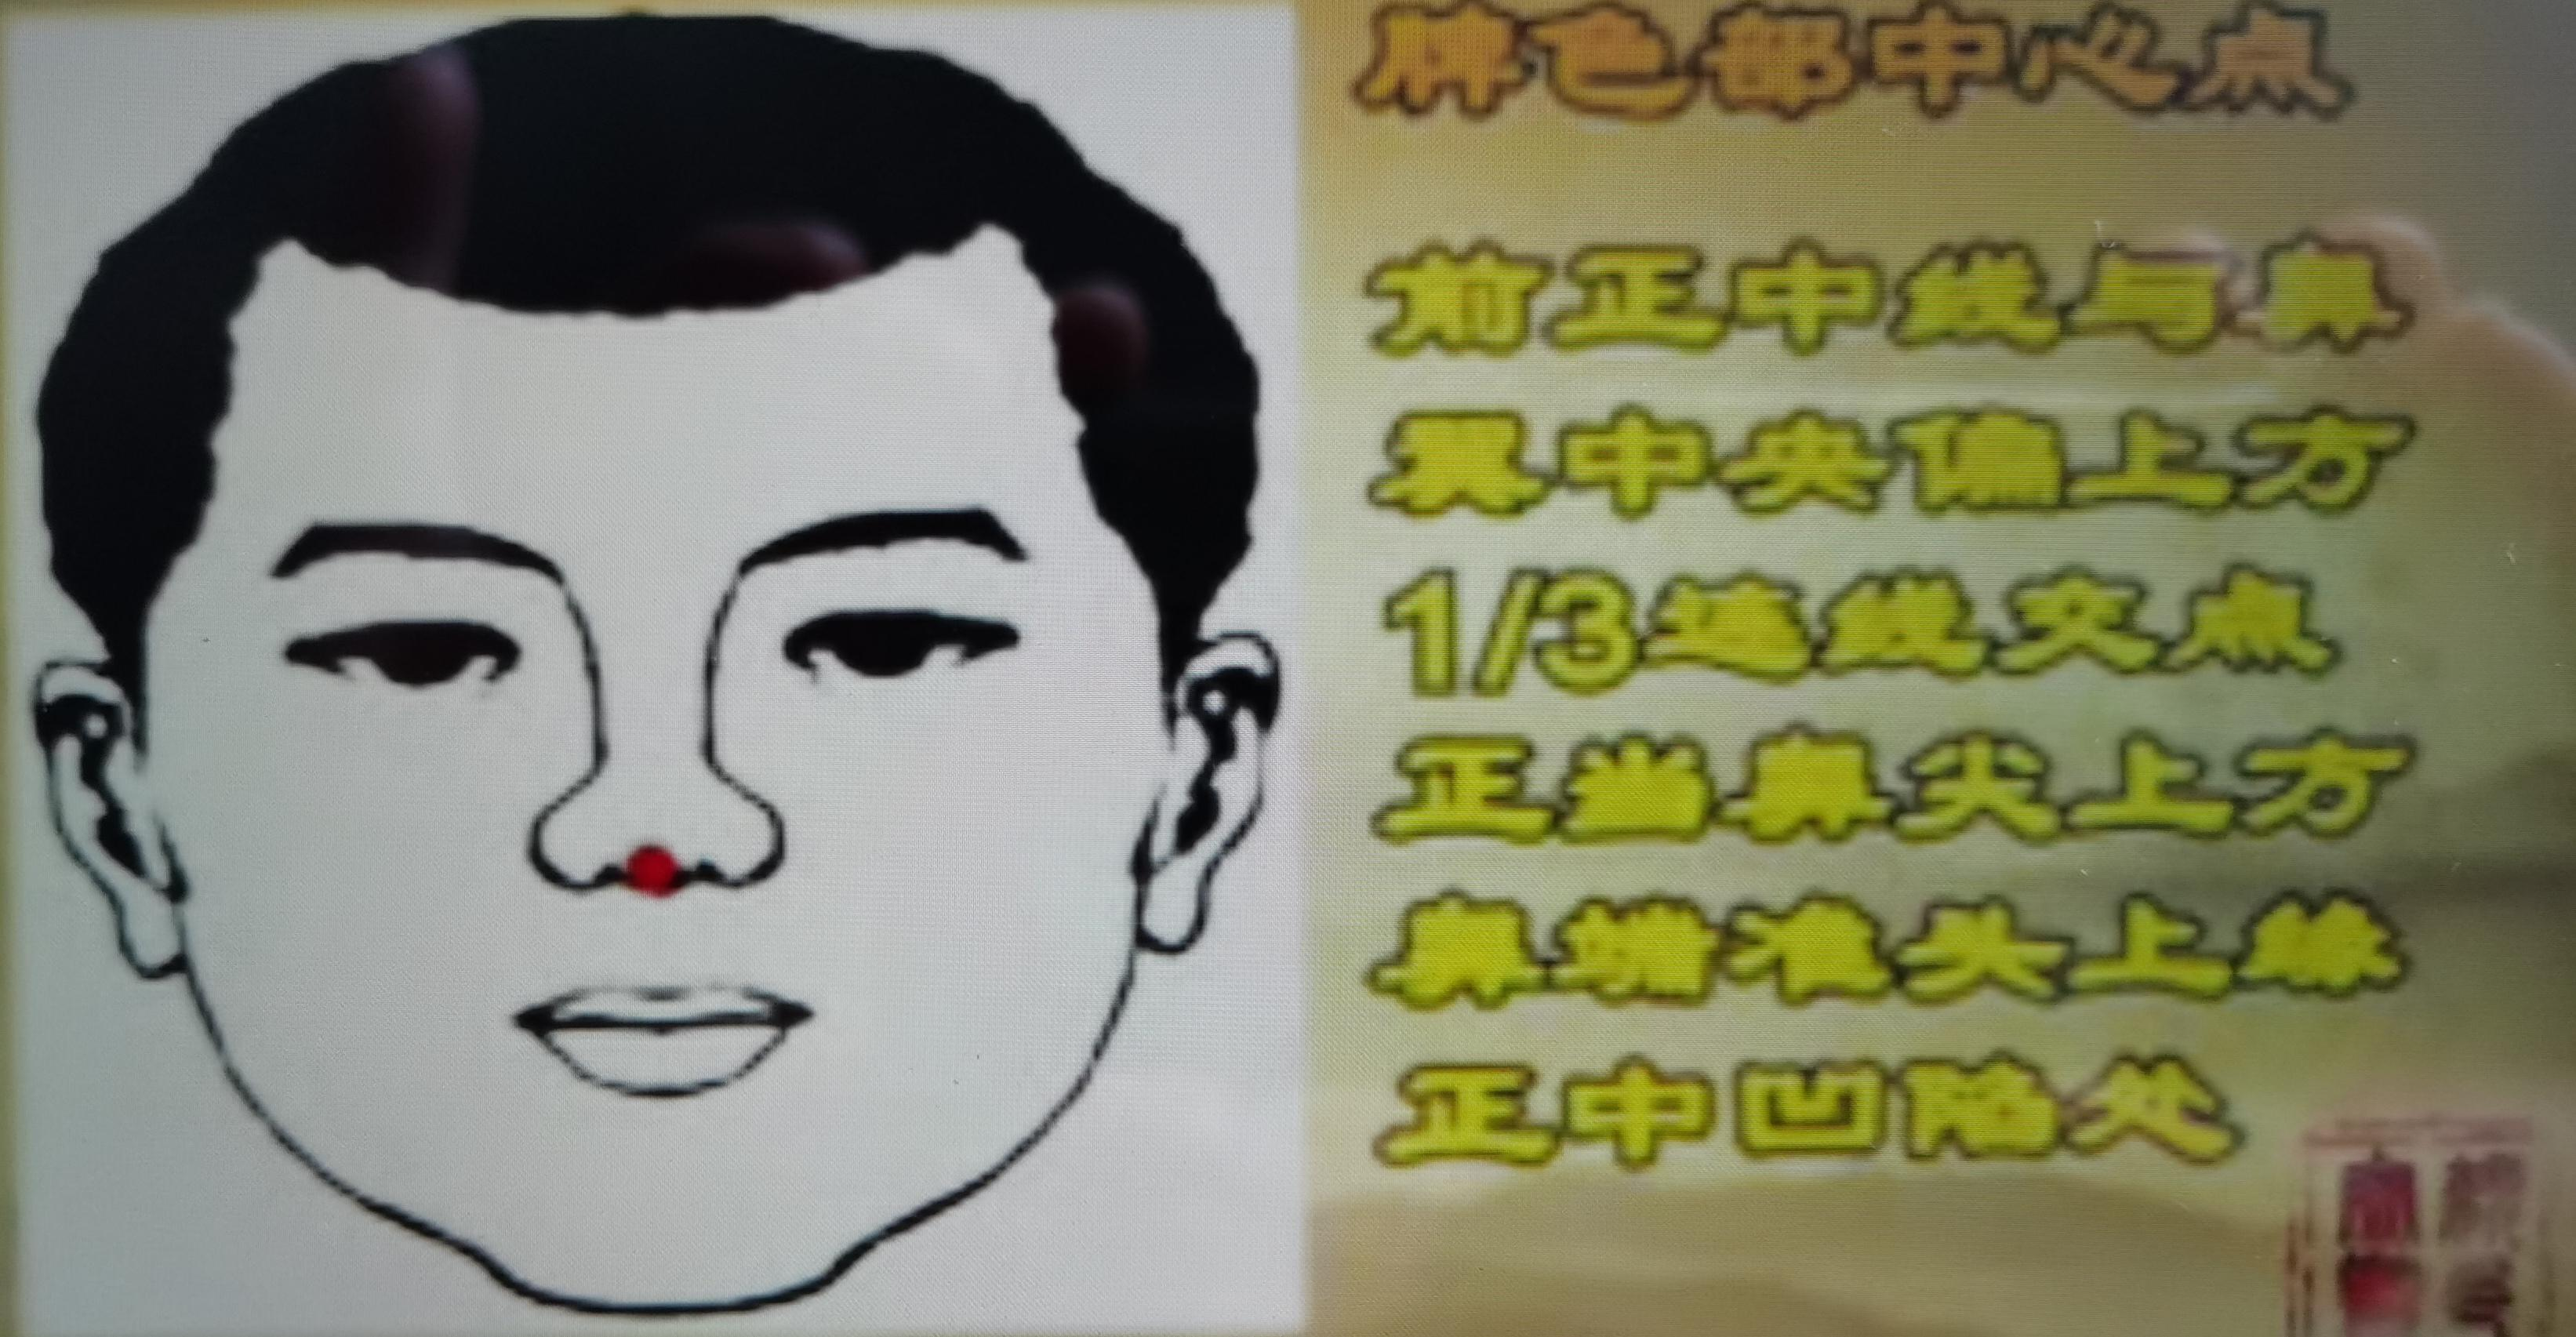 脾色部中心点
前正中线与鼻
翼中央偏上方
1/3连线交点
正当鼻尖上方
鼻端准头上缘
正中凹陷处